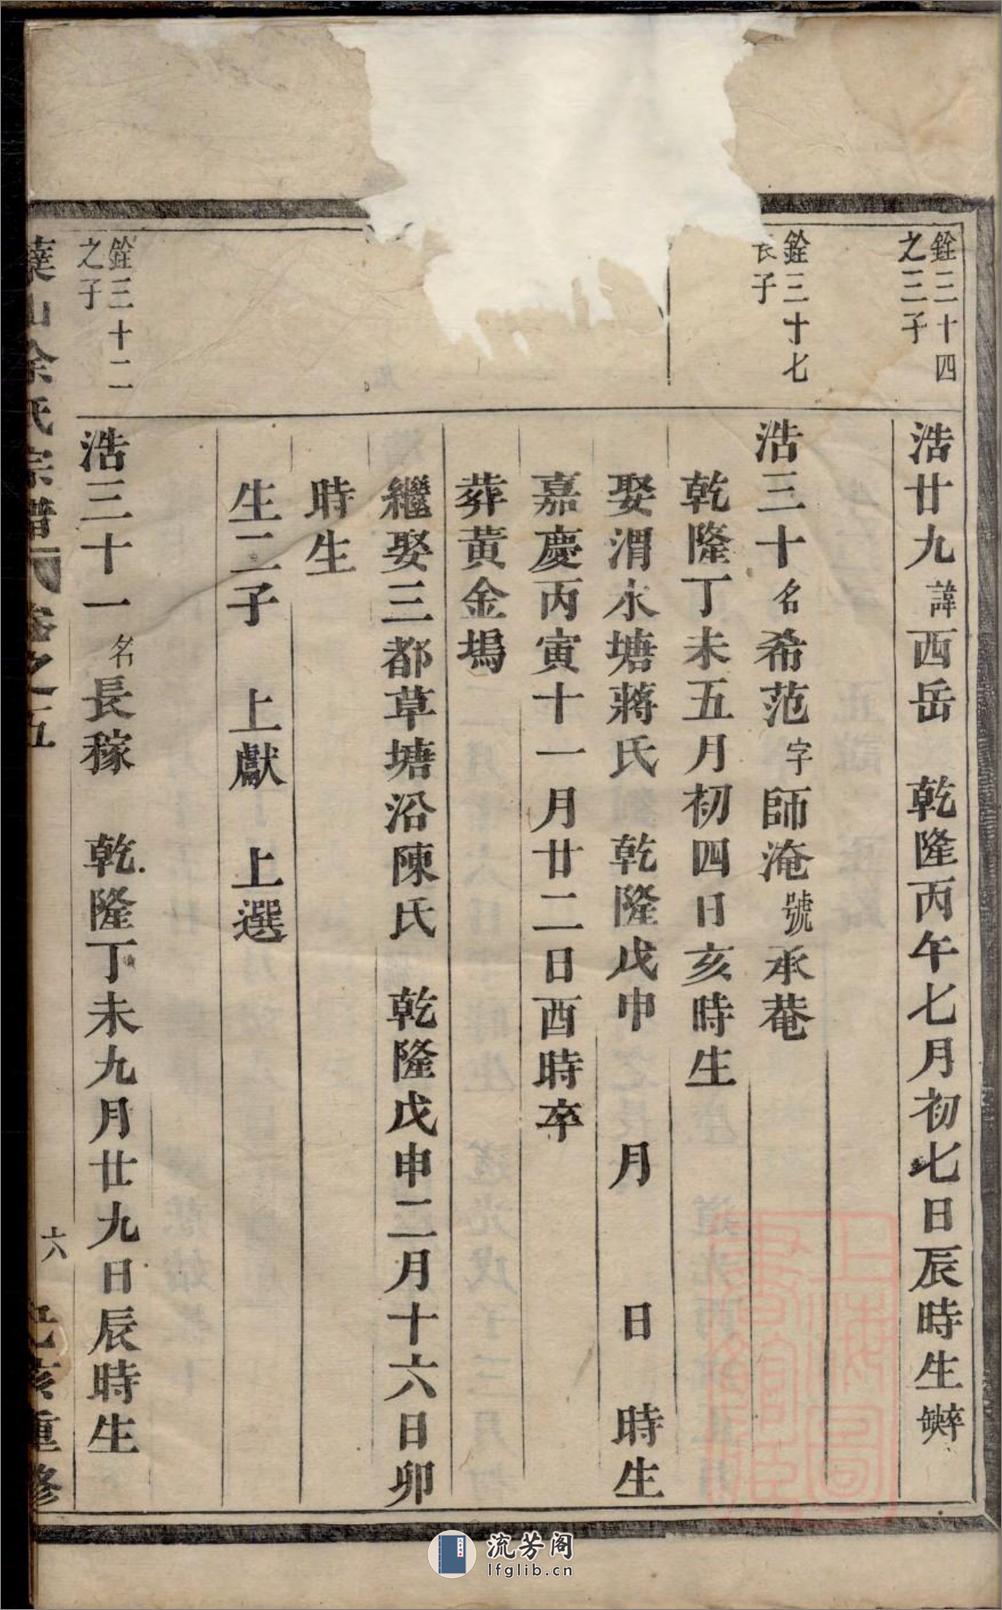 銓三十四
之三子
浩廿九諱西岳 乾隆丙午七月初七日辰時生卒缺
銓三十七
長子
浩三十名希范字師淹號承菴
乾隆丁未五月初四日亥時生
娶渭水塘蔣氏 乾隆戊申 月 日 時生
嘉慶丙寅十一月廿二日酉時卒
葬黃金塢
繼娶三都草塘沿陳氏 乾隆戊申二月十六日卯
時生
生二子 上獻 上選
銓三十二
之子
浩三十一名長稼 乾隆丁未九月廿九日辰時生
山余氏宗譜 卷之五 六 己亥重修
上海圖書館藏
流芳阁
lfglib.cn